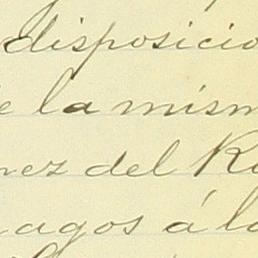 disposicio
e la mism
nez del R
agos á la